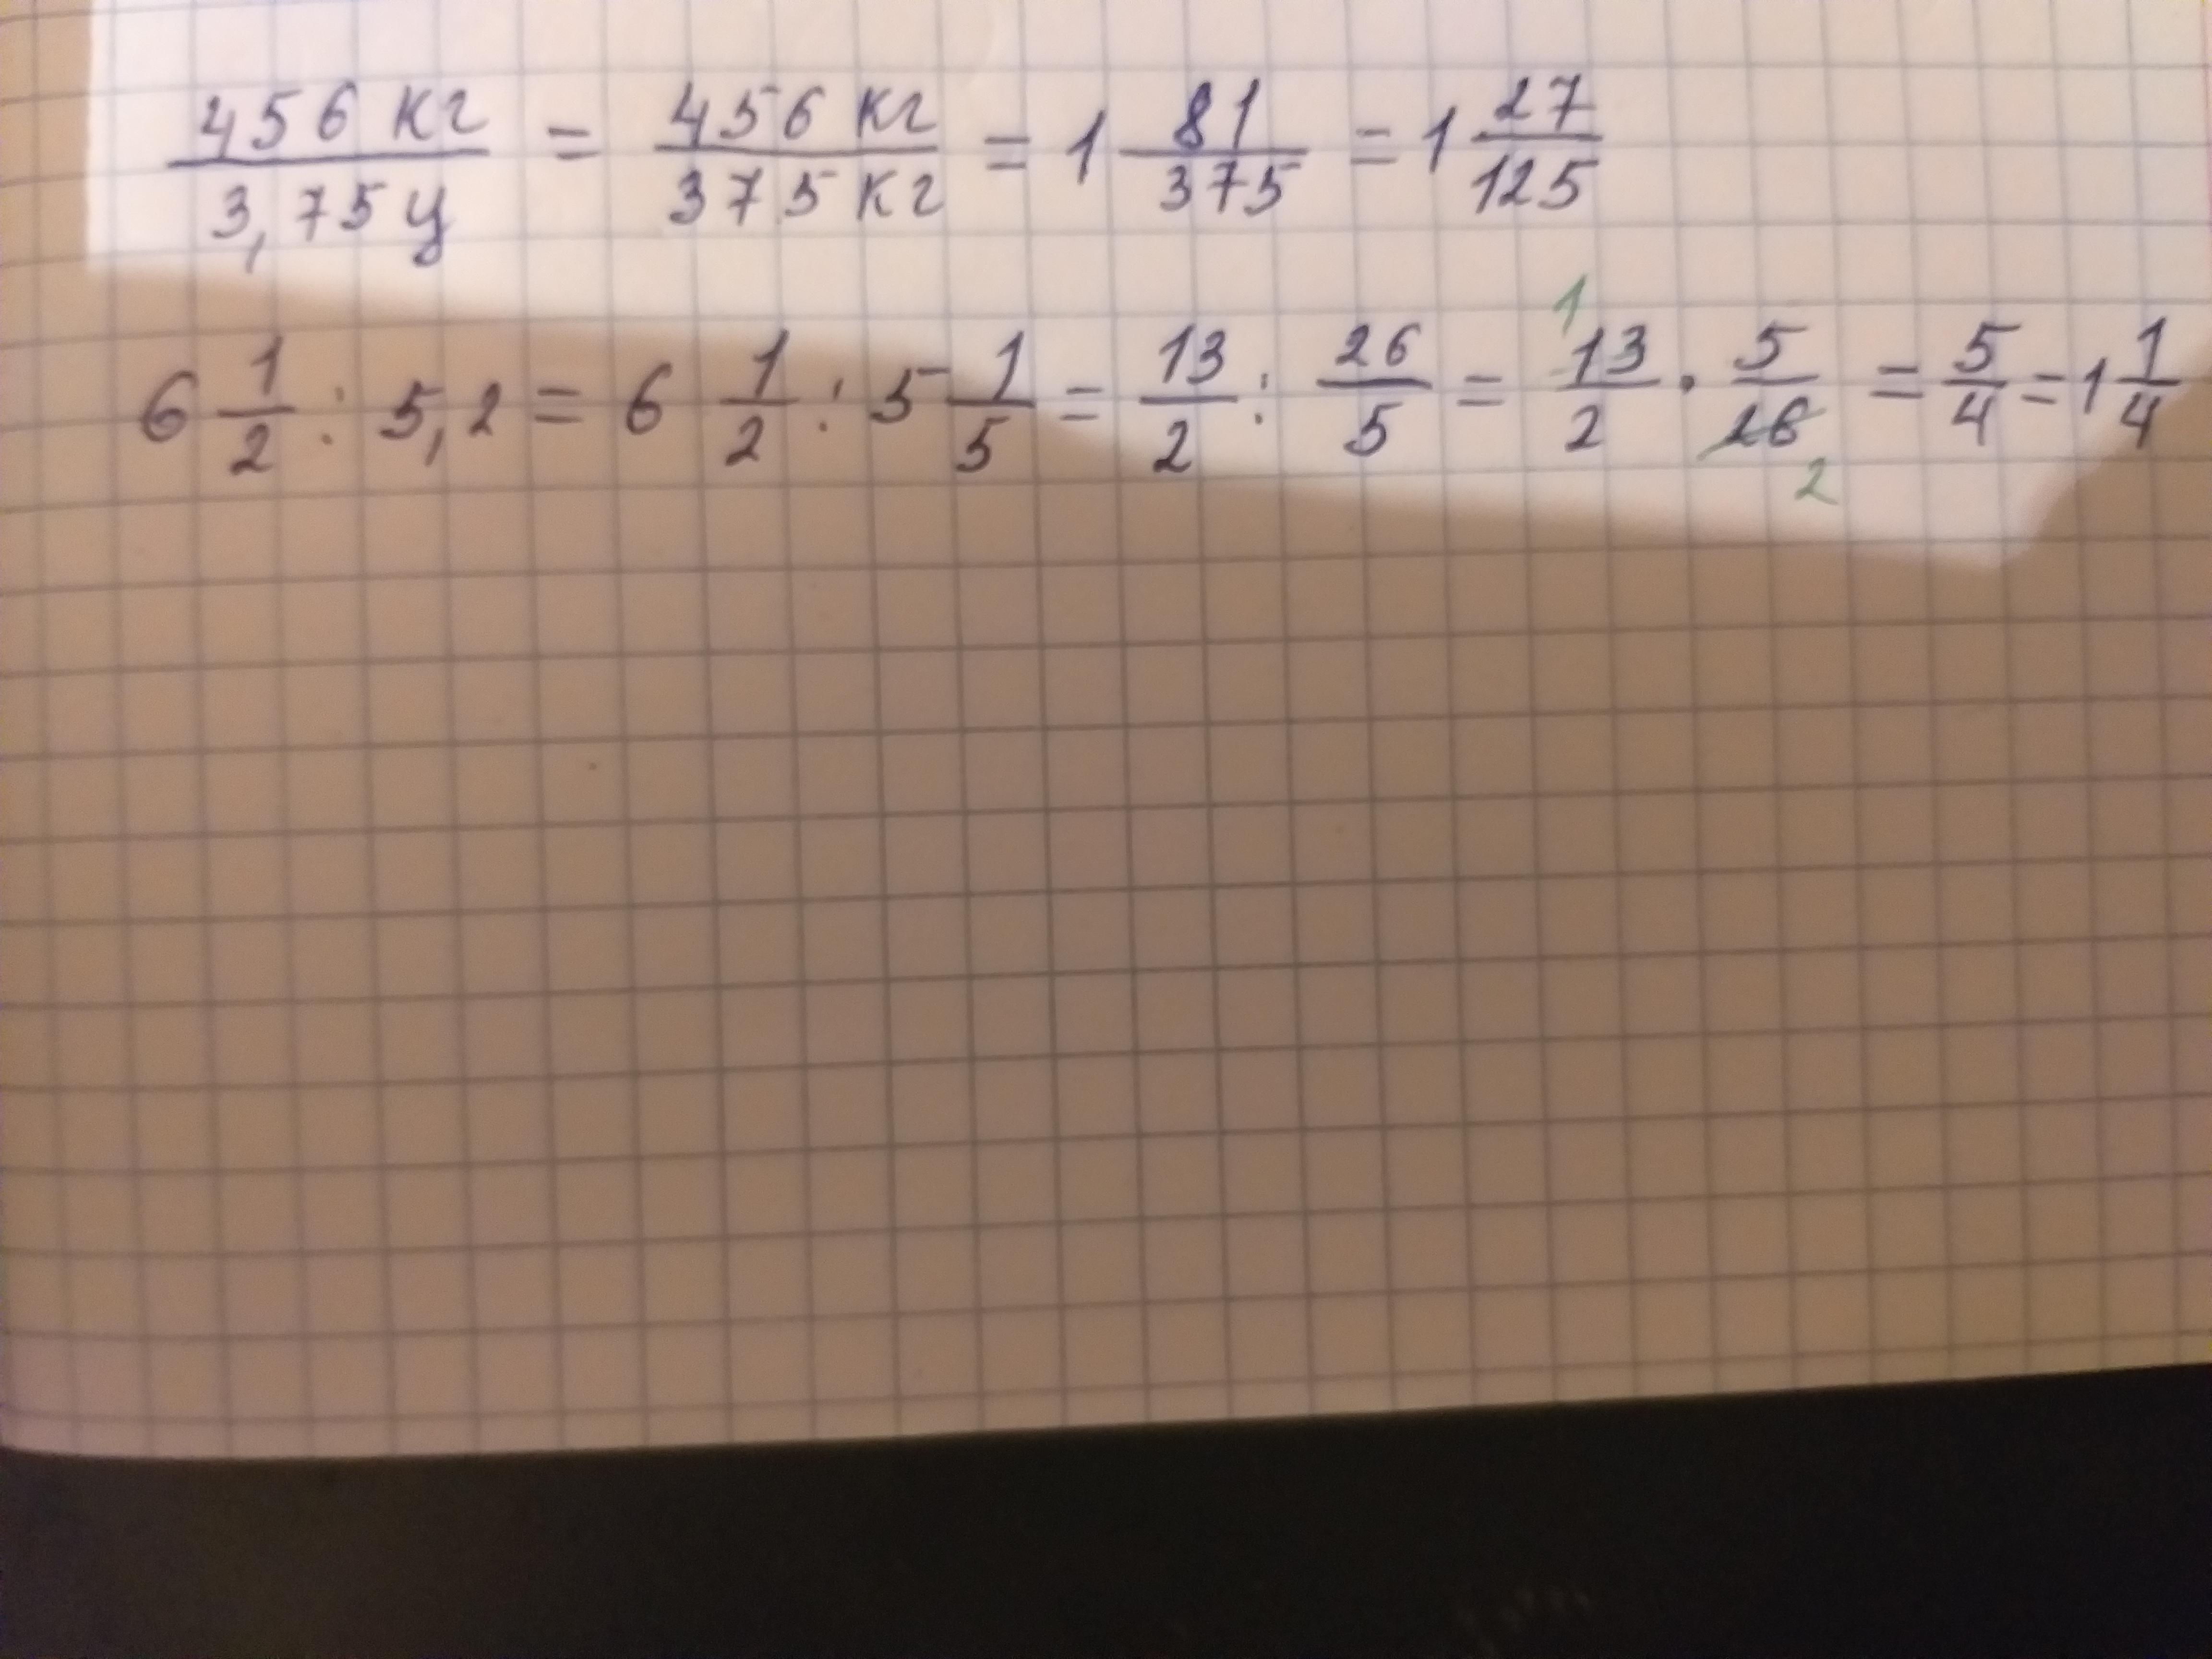 456 кг / 3,75 ц = 456 кг / 375 кг = 1 81/375 = 1 27/125
6 1/2 : 5,2 = 6 1/2 : 5 1/5 = 13/2 : 26/5 = 1 13/2 · 5/26 2 = 5/4 = 1 1/4